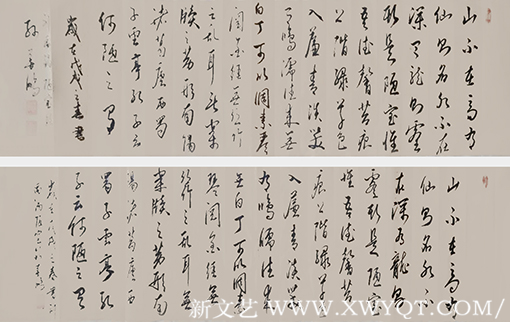 山不在高有
仙则名水不在
深有龙则灵
斯是陋室惟
吾德馨苔痕
上阶绿草色
入帘青谈笑
有鸿儒往来无
白丁可以调素琴
阅金经无丝竹
之乱耳无案
牍之劳形南阳
诸葛庐西蜀
子云亭孔子云
何陋之有
山不在高有
仙则名水不
在深有龙则
灵斯是陋室
惟吾德馨苔
痕上阶绿草色
入帘青谈笑
有鸿儒往来
无白丁可以调素
琴阅金经无
丝竹之乱耳无
案牍之劳形南
阳诸葛庐西
蜀子云亭孔
子云何陋之有
新文艺/WWW.XWYQT.COM